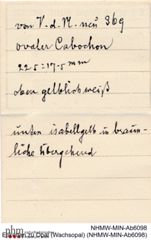 von V. d. N. neu 369
ovaler Cabochon
22·5 : 17·5 mm
oben gelblichweiß
unten isabellgelb in bräun-
liche übergehend
nhm
NHMW-MIN-Ab6098
Etiketten zu Opal (Wachsopal) (NHMW-MIN-Ab6098)